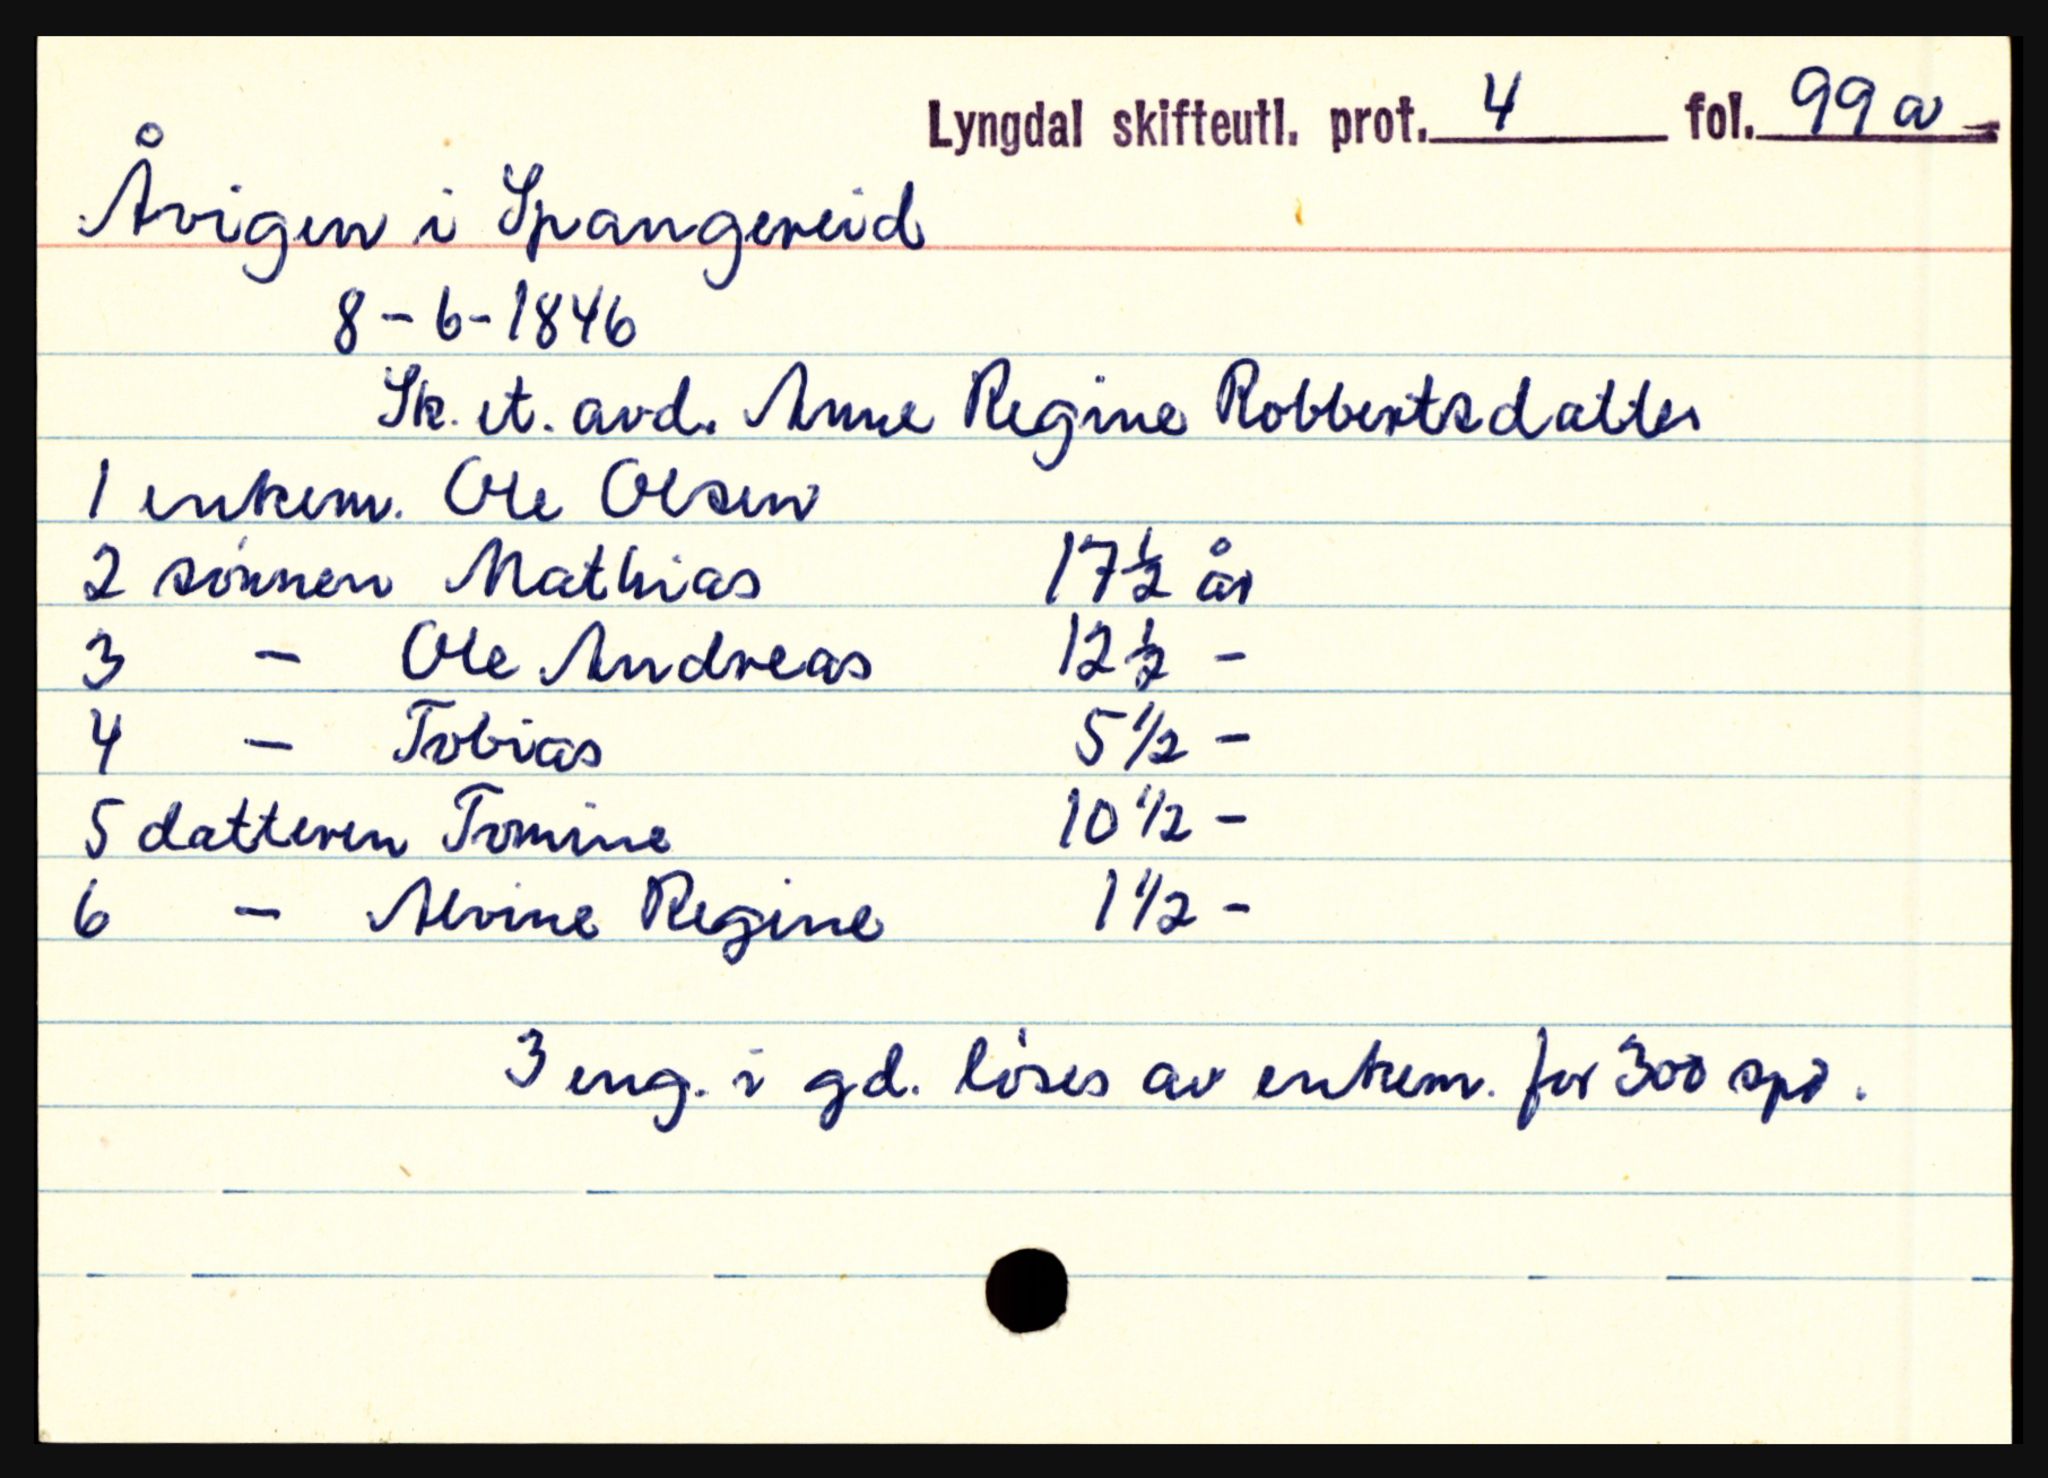 Lyngdal skifteutl. prot. 4 fol. 99 a -
Åvigen i Spangereid
8-6-1846
Sk. et. avd. Anne Regine Robbertsdatter
1 enkem. Ole Olsen
2 sønnen Mathias 17 1/2 år
3 - Ole Andreas 12 1/2 -
4 - Tobias 5 1/2 -
5 datteren Tomine 10 1/2 -
6 - Alvine Regine 1 1/2 -
3 eng. i gd. løses av enkem. for 300 spd.